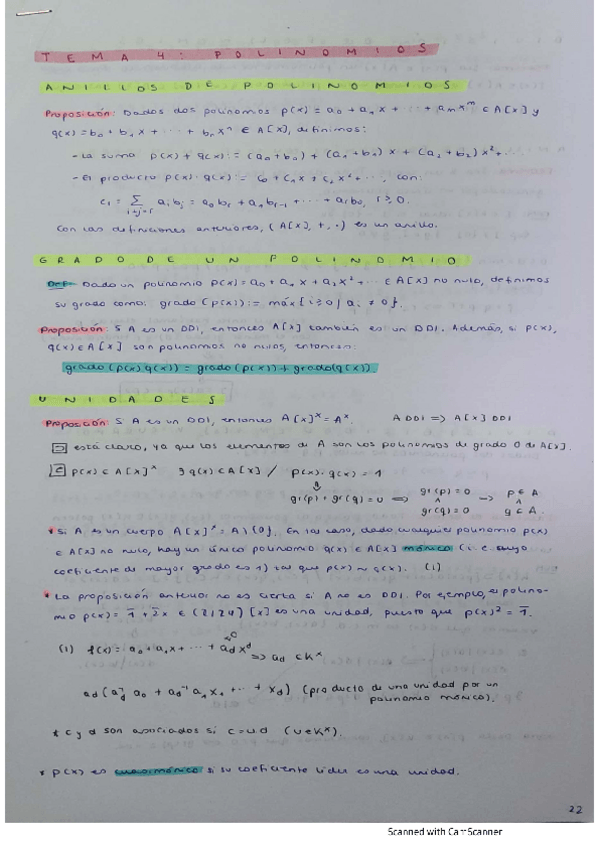 TEMA 4: POLINOMIOS
ANILLOS DE POLINOMIOS
Proposición: Dados dos polinomios p(x) = a₀ + a₁x + ... + aₘxᵐ ∈ A[x] y
q(x) = b₀ + b₁x + ... + bₙxⁿ ∈ A[x], definimos:
- La suma p(x) + q(x) := (a₀+b₀) + (a₁+b₁)x + (a₂+b₂)x² + ...
- El producto p(x)·q(x) := c₀ + c₁x + c₂x² + ... con:
cᵢ = Σ aᵢbⱼ = a₀bᵢ + a₁bᵢ₋₁ + ... + aᵢb₀, i ≥ 0.
i+j=i
Con las definiciones anteriores, (A[x], +, ·) es un anillo.
GRADO DE UN POLINOMIO
Def: Dado un polinomio p(x) = a₀ + a₁x + a₂x² + ... ∈ A[x] no nulo, definimos
su grado como: grado(p(x)) := máx{i ≥ 0 / aᵢ ≠ 0}.
Proposición: Si A es un DDI, entonces A[x] también es un DDI. Además, si p(x),
q(x) ∈ A[x] son polinomios no nulos, entonces:
grado(p(x)q(x)) = grado(p(x)) + grado(q(x))
UNIDADES
Proposición: Si A es un DDI, entonces A[x]ˣ = Aˣ. A DDI => A[x] DDI
⊇ está claro, ya que los elementos de A son los polinomios de grado 0 de A[x].
⊆ p(x) ∈ A[x]ˣ ∃ q(x) ∈ A[x] / p(x)·q(x) = 1
gr(p) + gr(q) = 0 => gr(p) = 0 ∧ gr(q) = 0 -> p ∈ A ∧ q ∈ A.
* Si A es un cuerpo A[x]ˣ = A\{0}. En tal caso, dado cualquier polinomio p(x)
∈ A[x] no nulo, hay un único polinomio q(x) ∈ A[x] mónico (i.e cuyo
coeficiente de mayor grado es 1) tal que p(x) ~ q(x). (1)
* La proposición anterior no es cierta si A no es DDI. Por ejemplo, el polino-
mio p(x) = 1̄ + 2̄x ∈ (Z/Z4)[x] es una unidad, puesto que p(x)² = 1̄.
(1) f(x) = a₀ + a₁x + ... + a_d x^d
≠0
=> a_d ∈ Kˣ
a_d(a_d⁻¹a₀ + a_d⁻¹a₁x + ... + x_d) (producto de una unidad por un
polinomio mónico).
* c y d son asociados si c = u·d (u ∈ Kˣ).
* p(x) es cuasimónico si su coeficiente líder es una unidad.
22
Scanned with CamScanner